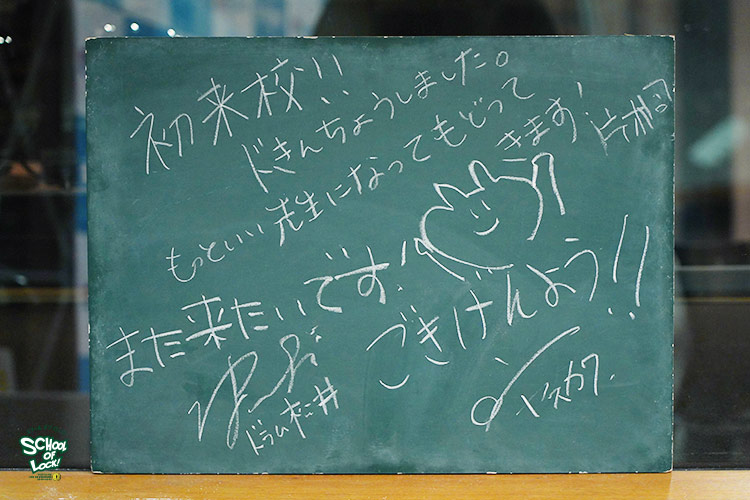 初来校!!
ドきんちょうしました。
もっといい先生になってもどって
きます!
また来たいです!
ごきげんよう!!
ドラム松井
メスカワ.
SCHOOL
OF
LOCK!